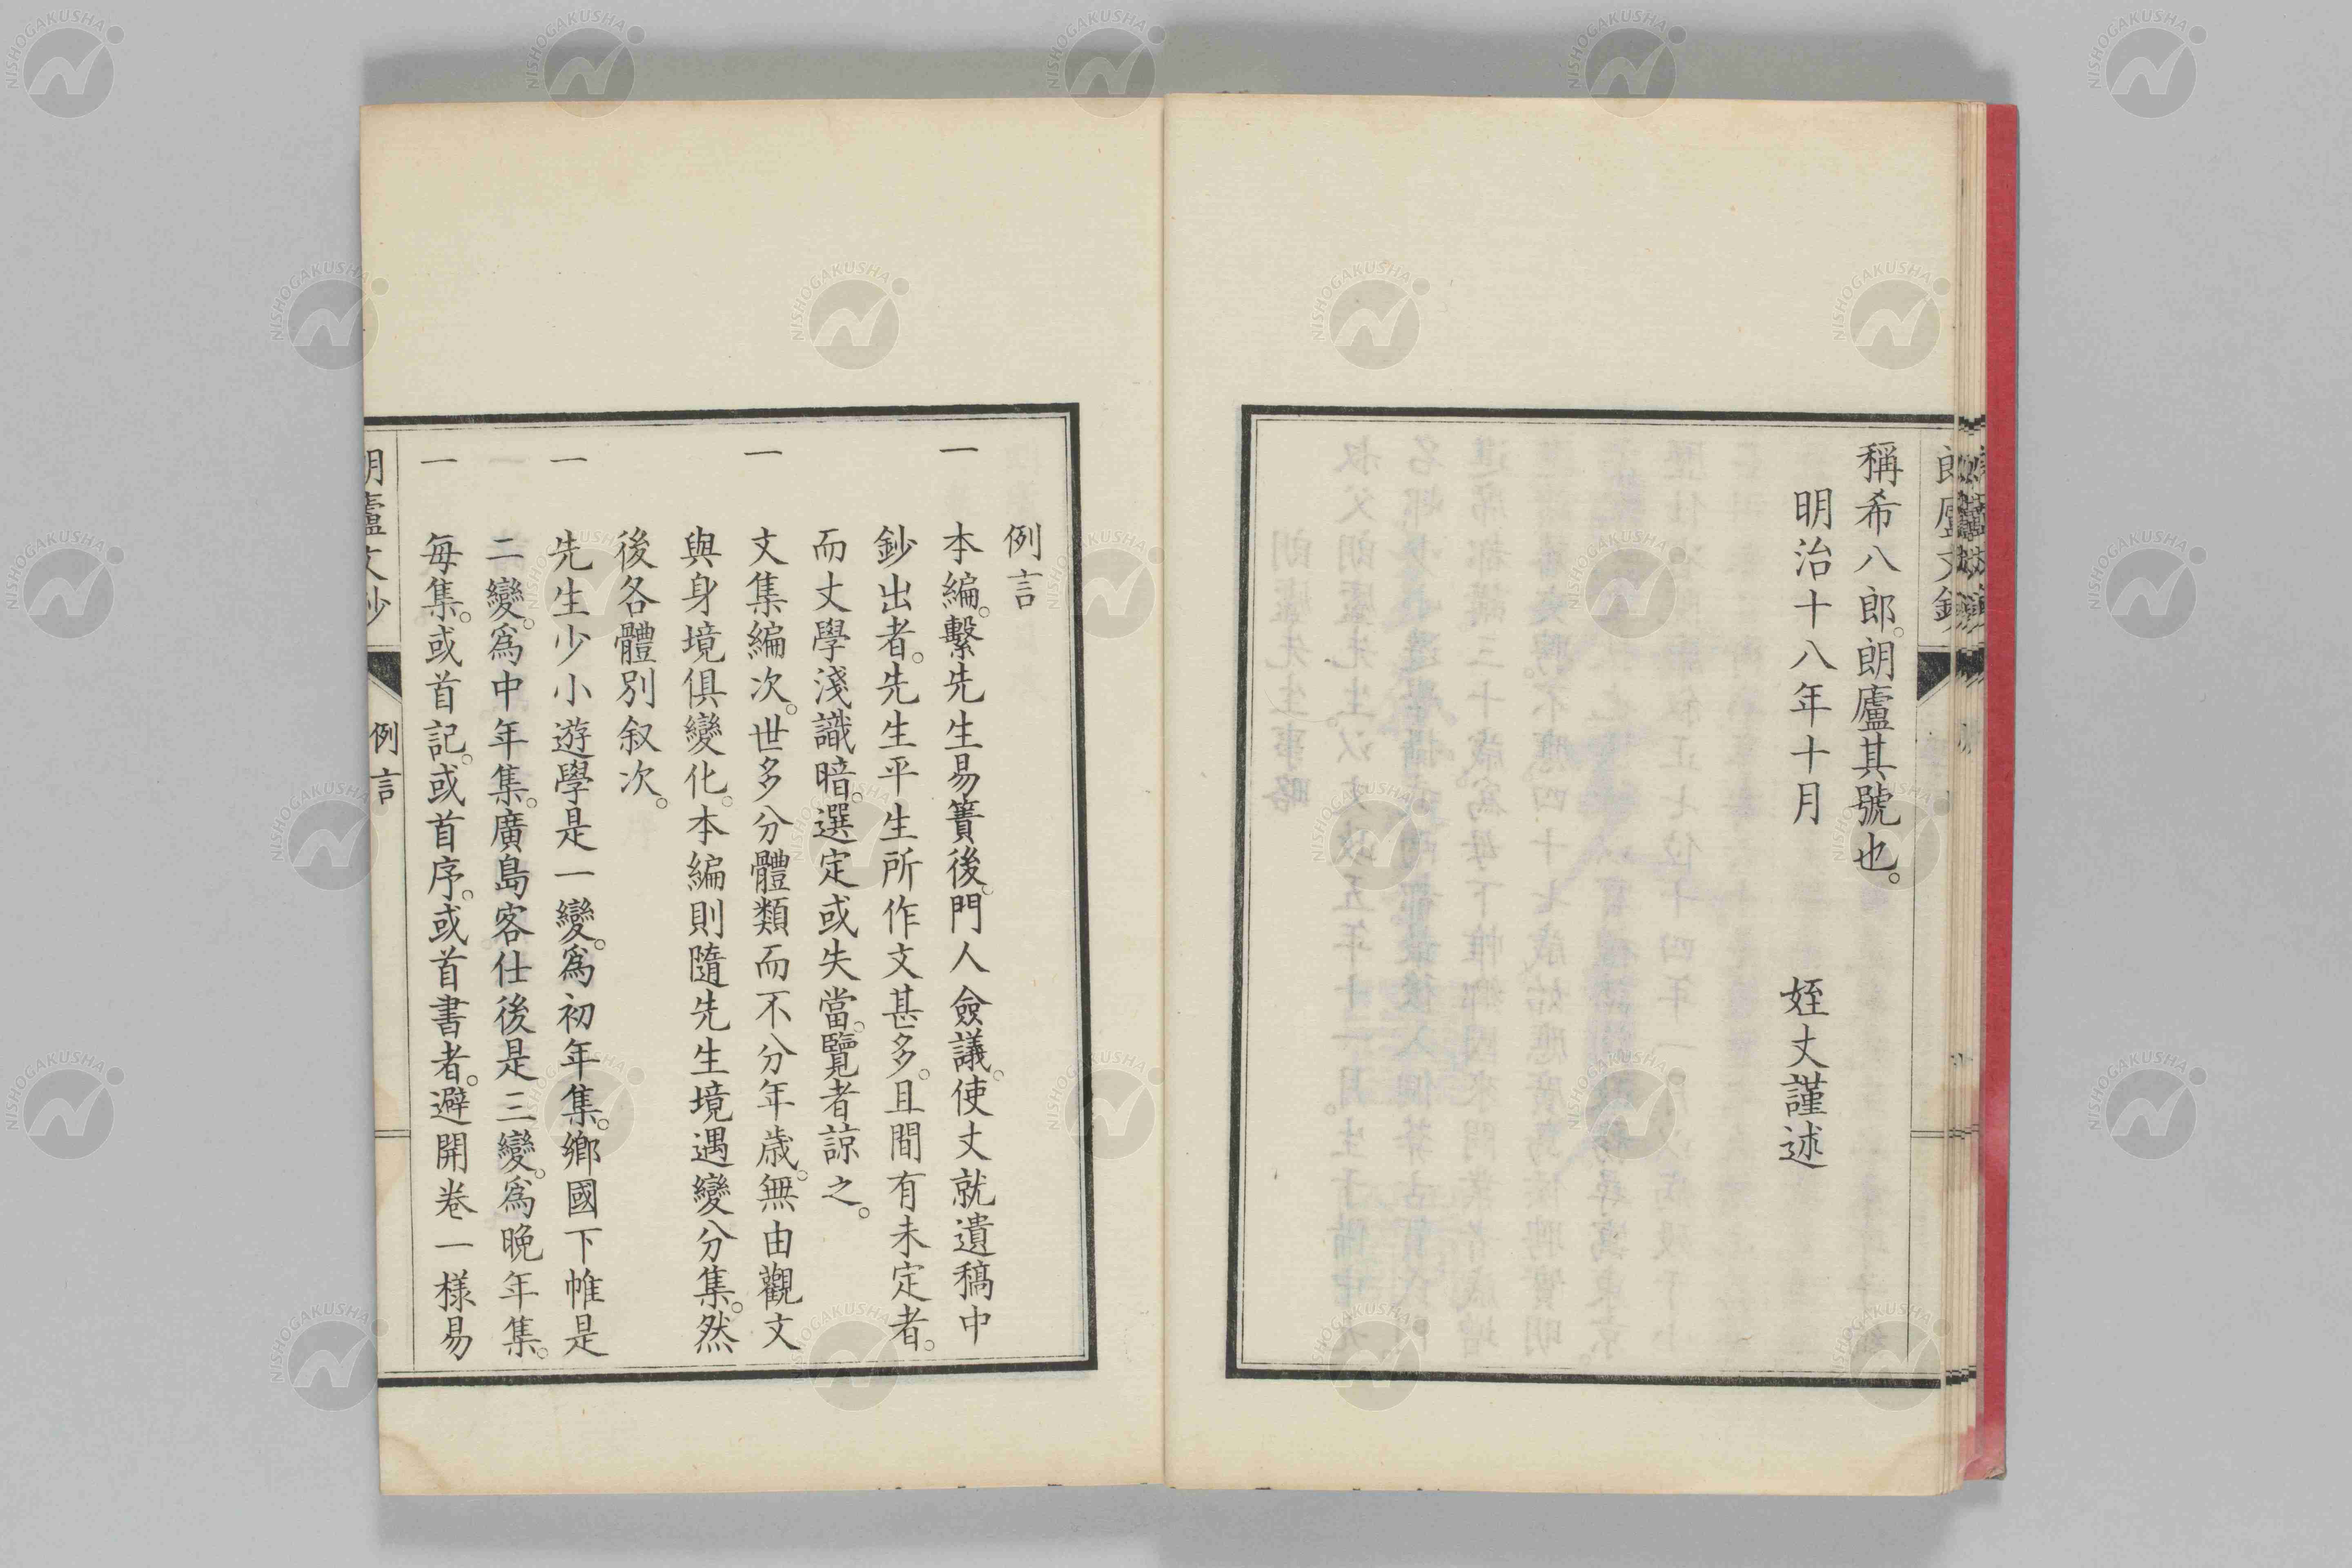 稱希八郎。朗廬其號也。
明治十八年十月
姪丈謹述
例言
一 本編。繫先生易簀後。門人僉議。使丈就遺稿中
鈔出者。先生平生所作文甚多。且間有未定者。
而丈學淺識暗。選定或失當。覽者諒之。
一 文集編次。世多分體類而不分年歲。無由觀文
與身境俱變化。本編則隨先生境遇變分集。然
後各體別叙次。
一 先生少小遊學是一變。爲初年集。鄉國下帷是
二變。爲中年集。廣島客仕後是三變。爲晚年集。
一 每集。或首記。或首序。或首書者。避開卷一樣易
例言
NISHOGAKUSHA